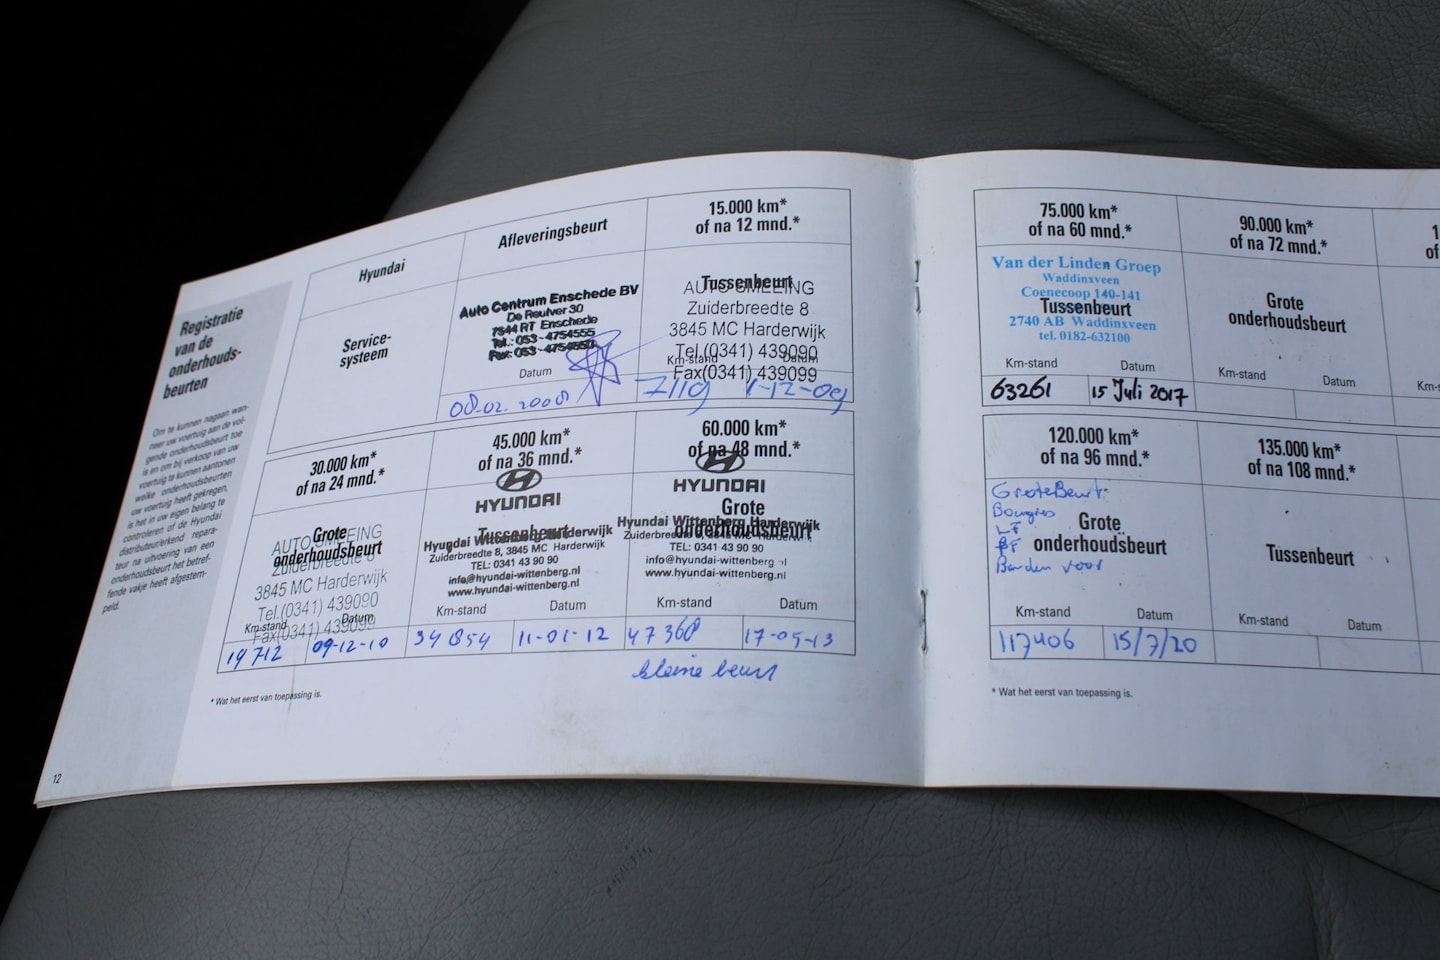 Registratie
van de
onderhouds-
beurten
Om te kunnen nagaan wan-
neer uw voertuig aan de vol-
gende onderhoudsbeurt toe
is en om bij verkoop van uw
voertuig te kunnen aantonen
welke onderhoudsbeurten
uw voertuig heeft gekregen,
is het in uw eigen belang te
controleren of de Hyundai
distributeur/erkend repara-
teur na uitvoering van een
onderhoudsbeurt het betref-
fende vakje heeft afgestem-
peld.
12
Hyundai
Service-
systeem
Afleveringsbeurt
Auto Centrum Enschede BV
De Reulver 30
7544 RT Enschede
Tel.: 053 - 4754555
Fax: 053 - 4754550
Datum
08.02.2008
15.000 km*
of na 12 mnd.*
Tussenbeurt
AUTO SMEEING
Zuiderbreedte 8
3845 MC Harderwijk
Tel.(0341) 439090
Km-stand Datum
Fax(0341) 439099
7119 1-12-09
30.000 km*
of na 24 mnd.*
Grote
onderhoudsbeurt
AUTO SMEEING
Zuiderbreedte 8
3845 MC Harderwijk
Tel.(0341) 439090
Km-stand Datum
Fax(0341) 439099
19712 09-12-10
45.000 km*
of na 36 mnd.*
HYUNDAI
Tussenbeurt
Hyundai Wittenberg Harderwijk
Zuiderbreedte 8, 3845 MC Harderwijk
TEL: 0341 43 90 90
info@hyundai-wittenberg.nl
www.hyundai-wittenberg.nl
Km-stand Datum
34854 11-01-12
60.000 km*
of na 48 mnd.*
HYUNDAI
Grote
onderhoudsbeurt
Hyundai Wittenberg Harderwijk
Zuiderbreedte 8, 3845 MC Harderwijk
TEL: 0341 43 90 90
info@hyundai-wittenberg.nl
www.hyundai-wittenberg.nl
Km-stand Datum
47368 17-05-13
kleine beurt
* Wat het eerst van toepassing is.
75.000 km*
of na 60 mnd.*
Van der Linden Groep
Waddinxveen
Coenecoop 140-141
Tussenbeurt
2740 AB Waddinxveen
tel. 0182-632100
Km-stand Datum
63261 15 Juli 2017
90.000 km*
of na 72 mnd.*
Grote
onderhoudsbeurt
Km-stand Datum
1
of
Km-s
120.000 km*
of na 96 mnd.*
Grote Beurt:
Bougies
LF
BF
Banden voor
Grote
onderhoudsbeurt
Km-stand Datum
117406 15/7/20
135.000 km*
of na 108 mnd.*
Tussenbeurt
Km-stand Datum
* Wat het eerst van toepassing is.